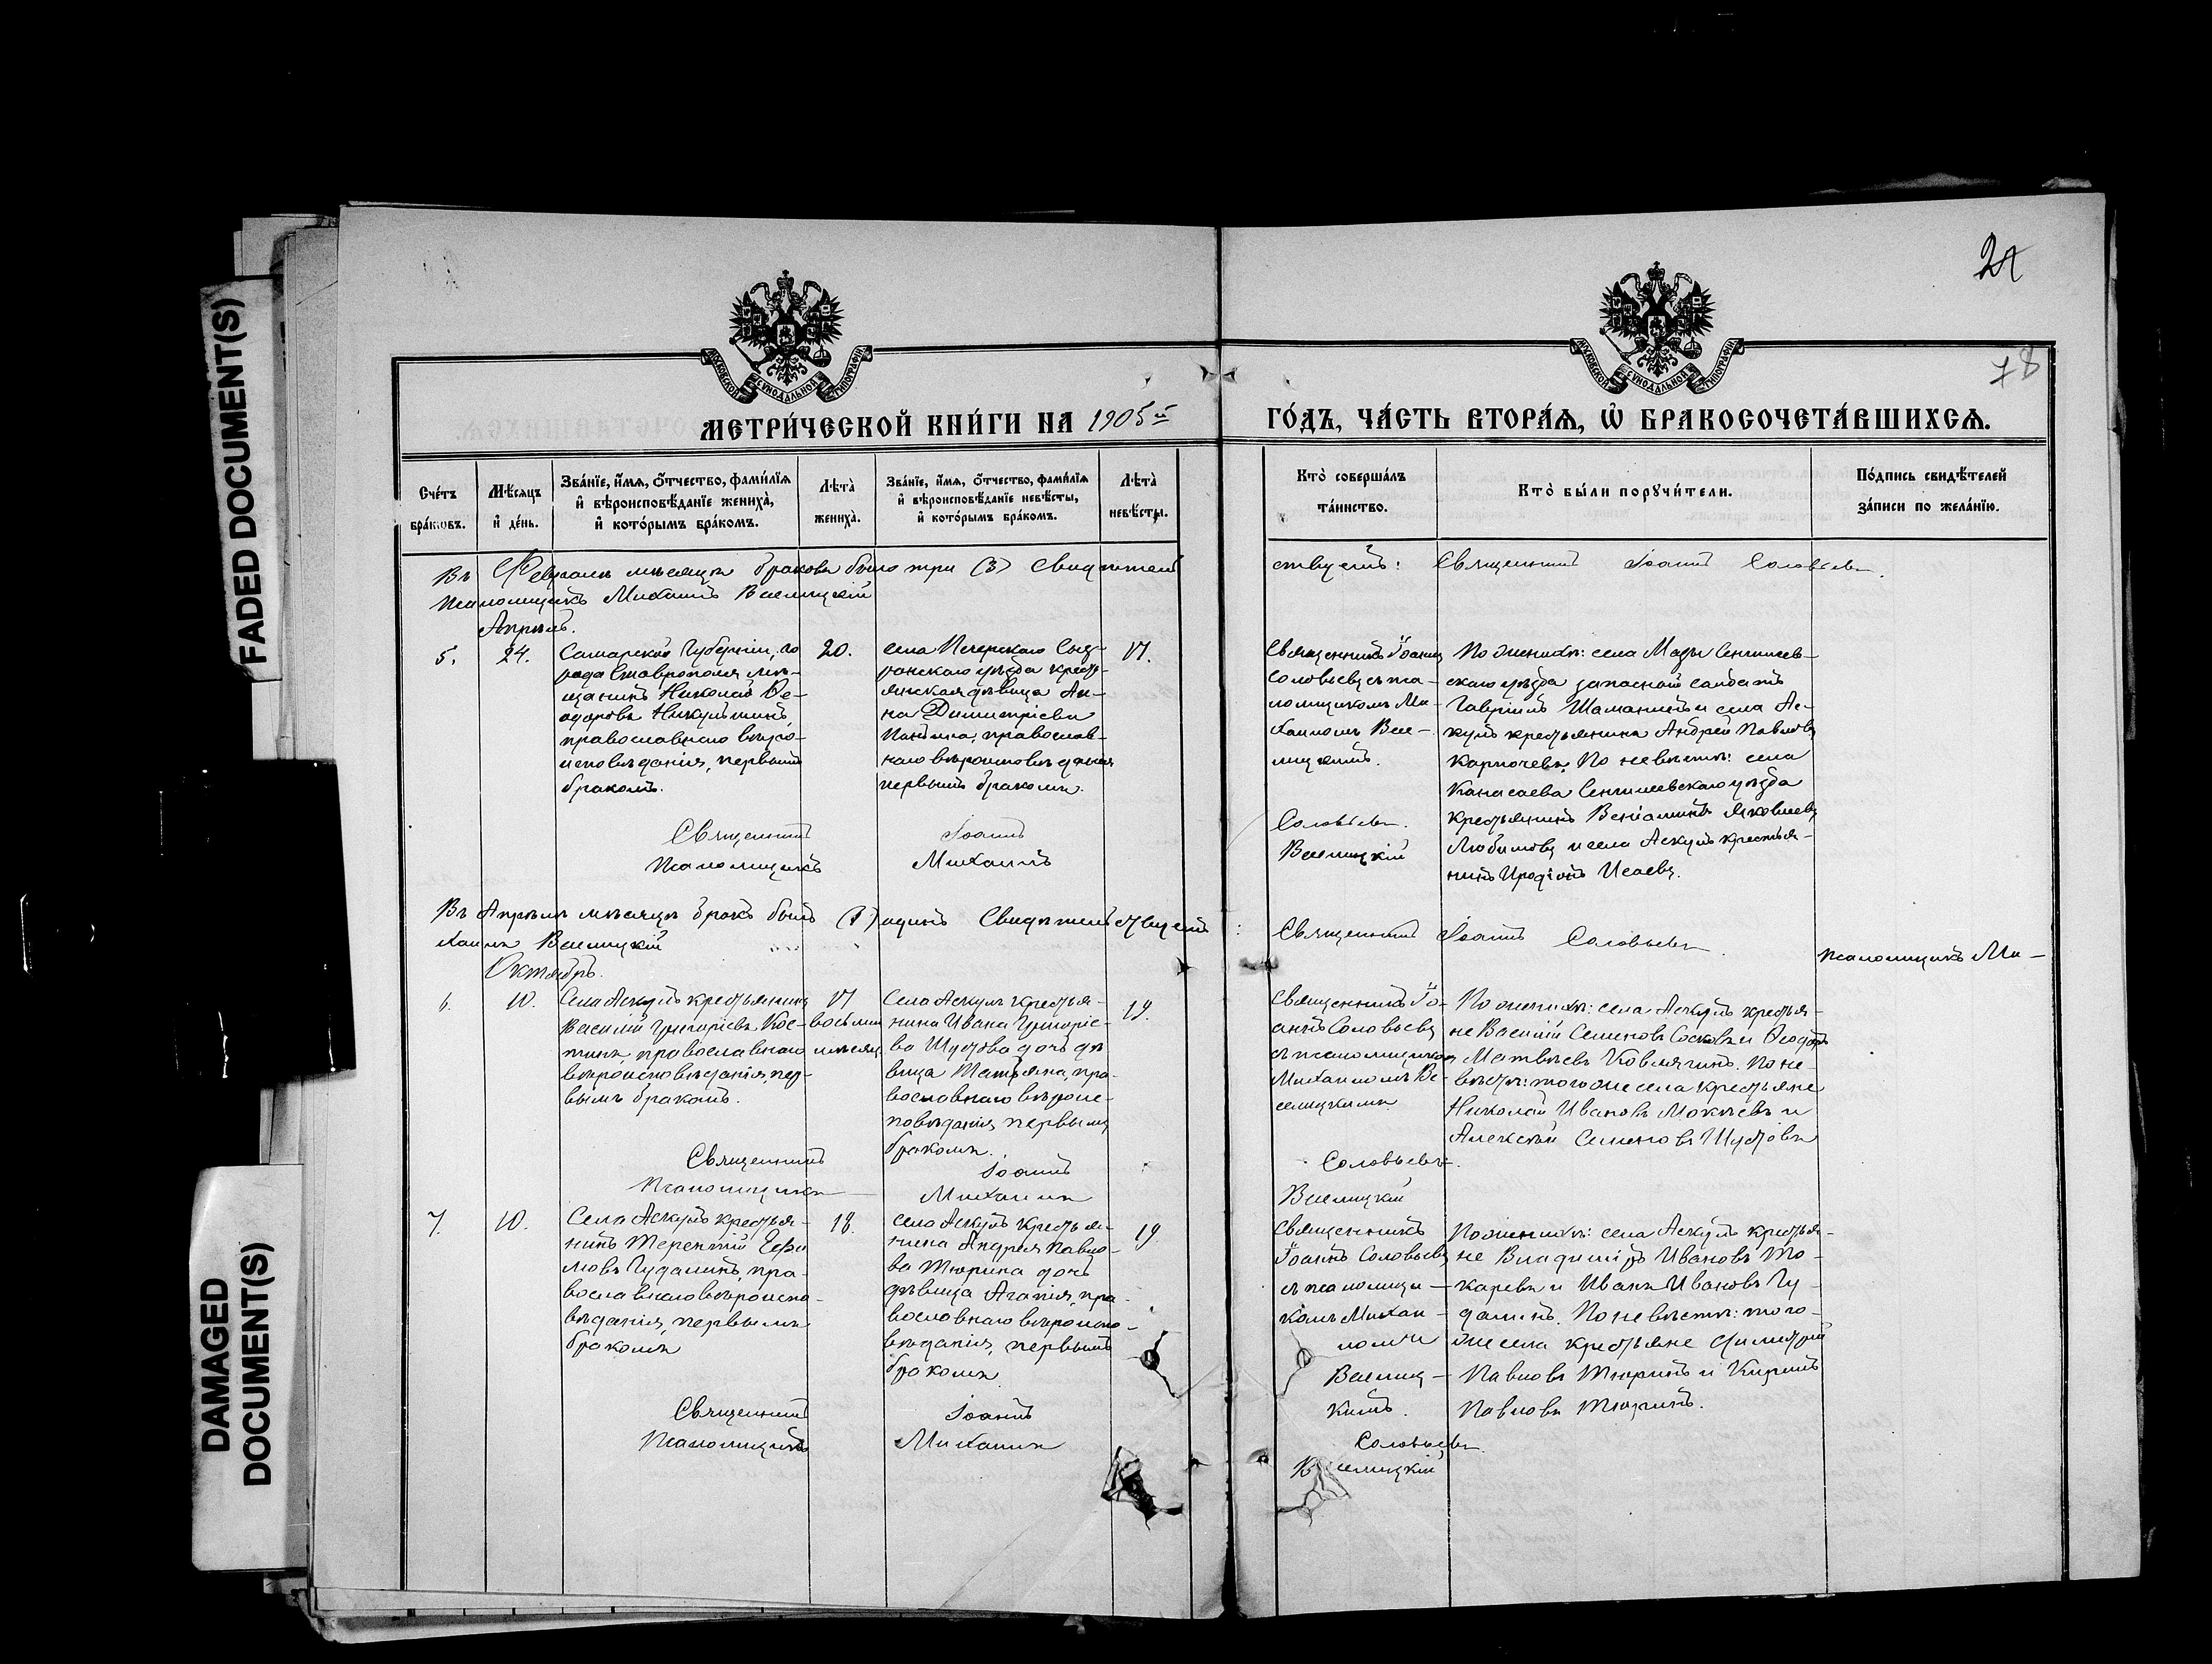 FADED DOCUMENT(S)
DAMAGED
DOCUMENT(S)
24
78
МОСКОВСКОЙ СѴНОДАЛЬНОЙ ТИПОГРАФІИ
МОСКОВСКОЙ СѴНОДАЛЬНОЙ ТИПОГРАФІИ
МЕТРИ́ЧЕСКОЙ КНИ́ГИ НА 1905й ГО́ДЪ, ЧА́СТЬ ВТОРА́Я, Ѡ БРАКОСОЧЕТА́ВШИХСЯ.
Сче́тъ
бра́ковъ.
Мѣ́сяцъ
и де́нь.
Зва́нїе, и́мя, о́тчество, фами́лїя
и вѣроисповѣ́данїе жениха̀,
и кото́рымъ бра́комъ.
Лѣта̀
жениха̀.
Зва́нїе, и́мя, о́тчество, фами́лїя
и вѣроисповѣ́данїе невѣ́сты,
и кото́рымъ бра́комъ.
Лѣта̀
невѣ́сты.
Кто̀ соверша́лъ
та́инство.
Кто̀ бы́ли порꙋчи́тели.
По́дпись свидѣ́телей
за́писи по жела́нїю.
Въ Февралѣ мѣсяцѣ браковъ было три (3) Свидѣтель
ствуетъ: Священникъ Іоаннъ Соловьевъ.
Псаломщикъ Михаилъ Веселицкій
Апрѣль.
5.
24.
Самарской Губерніи, го
рода Ставрополя мѣ-
щанинъ Николай Ѳе-
одоровъ Никульшинъ,
православнаго вѣро-
исповѣданія, первымъ
бракомъ.
20.
села Печерскаго Сыз-
ранскаго уѣзда кресть-
янская дѣвица Ан-
на Димитріева
православ-
наго вѣроисповѣданія
первымъ бракомъ.
17.
Священникъ Іоаннъ
Соловьевъ съ пса-
ломщикомъ Ми-
хаиломъ Весе-
лицкимъ.
По женихѣ: села Мазы Сенгилеев-
скаго уѣзда запасной солдатъ
Гавріилъ Шаманинъ и села Ас-
кулъ крестьянинъ Андрей Павловъ
Карпочевъ. По невѣстѣ: села
Канасаева Сенгилеевскаго уѣзда
крестьянинъ Веніаминъ Яковлевъ
Любимовъ и села Аскулъ крестья-
нинъ Иродіонъ Исаевъ.
Священникъ Іоаннъ Соловьевъ.
Псаломщикъ Михаилъ Веселицкій
Въ Апрѣлѣ мѣсяцѣ бракъ былъ (1) одинъ Свидѣтельствуетъ: Священникъ Іоаннъ Соловьевъ
Псаломщикъ Ми-
хаилъ Веселицкій
Октябрь.
6.
10.
Села Аскулъ крестьянинъ
Василій Григорьевъ Кос-
тинъ, православнаго
вѣроисповѣданія, пер-
вымъ бракомъ.
17
восемь
мѣсяц
Села Аскулъ крестья-
нина Ивана Григорье-
ва Шустова дочь дѣ
вица Татьяна, пра-
вославнаго вѣроис-
повѣданія первымъ
бракомъ.
19.
Священникъ Іо-
аннъ Соловьевъ
съ псаломщикомъ
Михаиломъ Ве-
селицкимъ
По женихѣ: села Аскулъ крестья-
не Василій Семеновъ Сосковъ и Ѳеодотъ
Матвѣевъ Ковлягинъ. По не-
вѣстѣ: того же села крестьяне
Николай Ивановъ Мокѣевъ и
Алексѣй Семеновъ Шустовъ
Священникъ Іоаннъ Соловьевъ.
Псаломщикъ Михаилъ Веселицкій
7.
10.
Села Аскулъ крестья-
нинъ Терентій Ефи
мовъ Гудалинъ, пра-
вославнаго вѣроиспо-
вѣданія, первымъ
бракомъ
18.
села Аскулъ крестья-
нина Андрея Павло-
ва Тюрина дочь
дѣвица Агапія, пра-
вославнаго вѣроиспо-
вѣданія, первымъ
бракомъ
19
Священникъ
Іоаннъ Соловьевъ
съ псаломщи-
комъ Михаи-
ломъ
Веселиц-
кимъ.
По женихѣ: села Аскулъ крестья-
не Владиміръ Ивановъ То-
каревъ и Иванъ Ивановъ Гу-
далинъ. По невѣстѣ: того-
же села крестьяне Димитрій
Павловъ Тюринъ и Кирилъ
Павловъ Тюринъ.
Священникъ Іоаннъ Соловьевъ.
Псаломщикъ Михаилъ Веселицкій